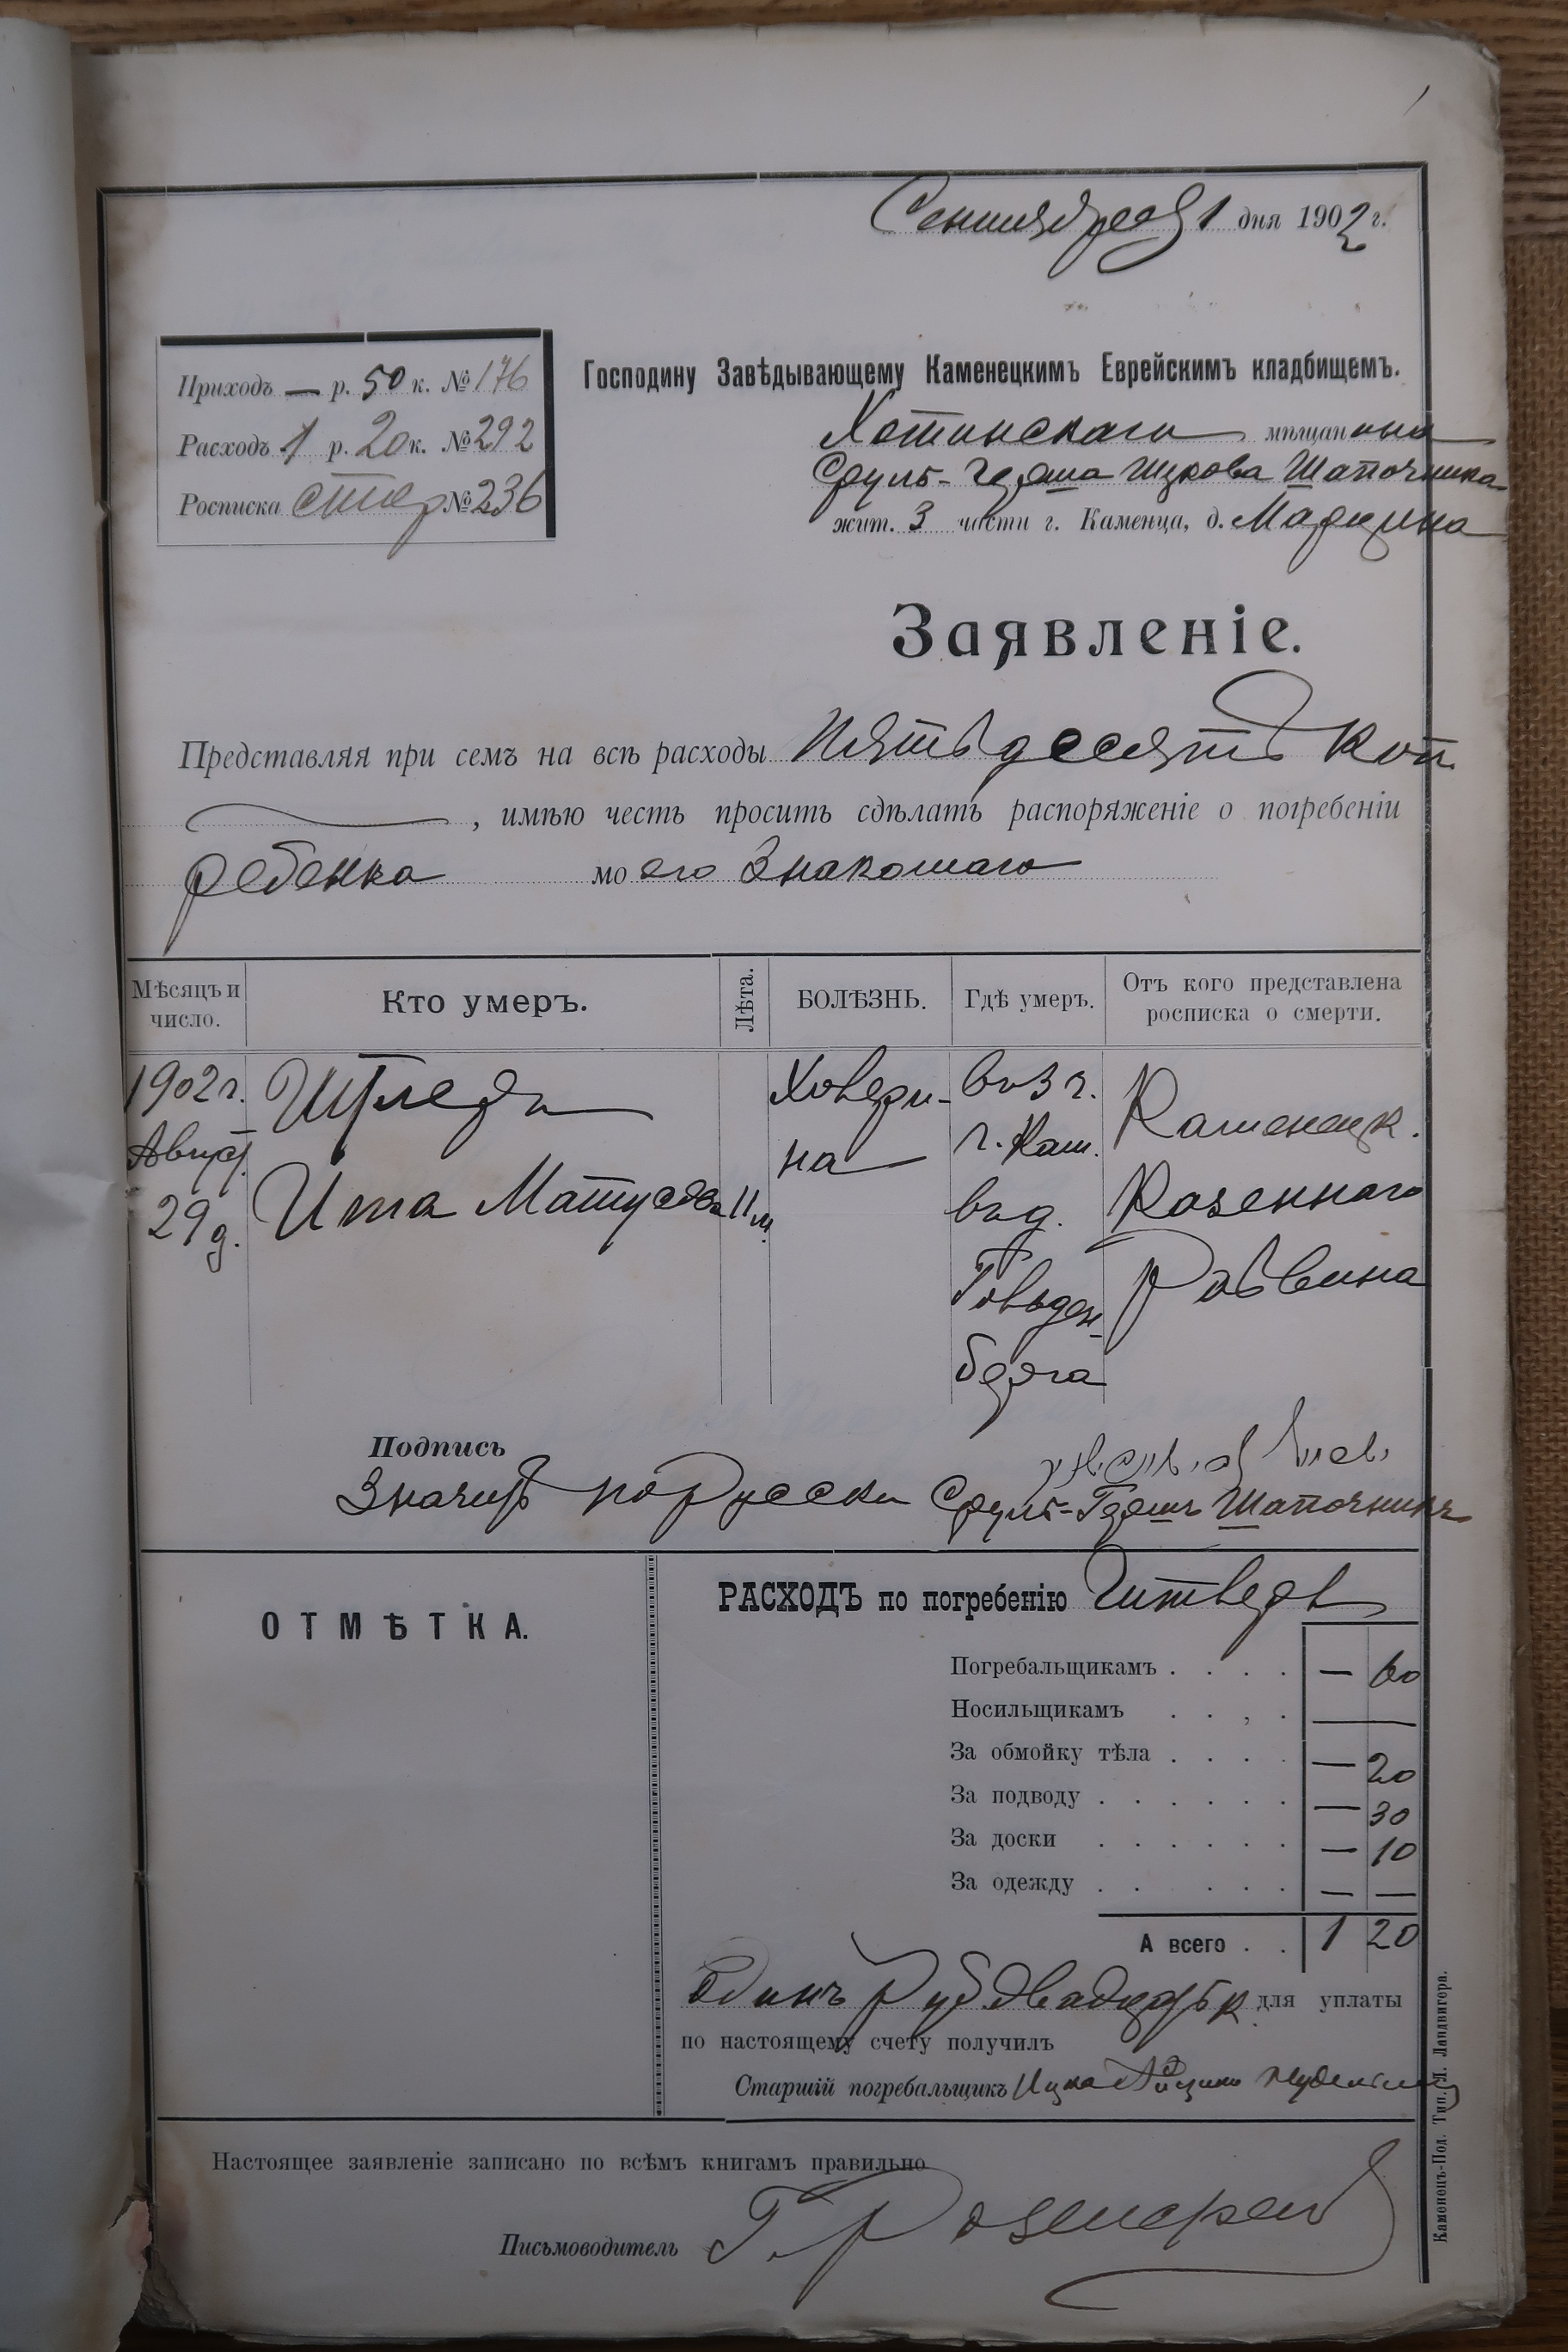 Сентября 1 дня 1902 г.
Приходъ — р. 50 к. № 176
Расходъ 1 р. 20 к. № 292
Росписка стар № 236
Господину Завѣдывающему Каменецкимъ Еврейскимъ кладбищемъ.
Хотинскаго мѣщанина
Сруль- Шапочника
жит. 3 части г. Каменца, д.
Заявленіе.
Представляя при семъ на всѣ расходы Пятьдесятъ Коп.
, имѣю честь просить сдѣлать распоряженіе о погребеніи
ребенка моего Знакомаго
Мѣсяцъ и число.
Кто умеръ.
Лѣта.
БОЛѢЗНЬ.
Гдѣ умеръ.
Отъ кого представлена росписка о смерти.
1902 г.
Август.
29 д.
Ита Матусова
11 м.
Холери-
на
во 3 ч.
г. Кам.
въ д.
Гольден-
берга
Каменецк.
Казеннаго
Раввина
Подпись
Значитъ по Русски Сруль- Шапочникъ
ОТМѢТКА.
РАСХОДЪ по погребенію
Погребальщикамъ . . . . — 60
Носильщикамъ . . , . —
За обмойку тѣла . . . . — 20
За подводу . . . . . . — 30
За доски . . . . . . — 10
За одежду . . . . . . — —
А всего . . 1 20
Одинъ Руб. двадцать к. для уплаты
по настоящему счету получилъ
Старшій погребальщикъ Ицка
Настоящее заявленіе записано по всѣмъ книгамъ правильно
Письмоводитель Г.
Каменецъ-Под. Тип. Я. Ландвигора.